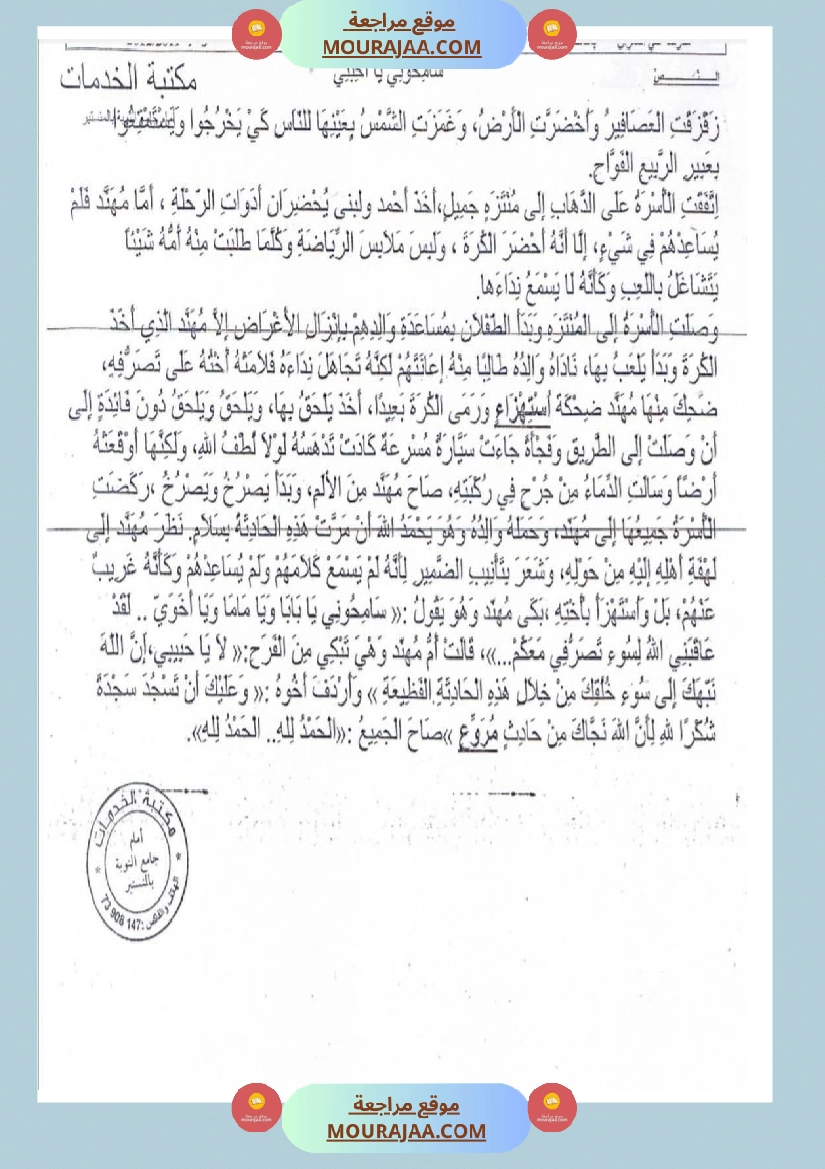 موقع مراجعة
MOURAJAA.COM
مكتبة الخدمات
النص
سَامِحُونِي يَا أَحِبَّتِي
زَقْزَقَتِ العَصَافِيرُ وَاْخْضَرَّتِ الْأَرْضُ، وَغَمَزَتِ الشَّمْسُ بِعَيْنِهَا للنَّاسِ كَيْ يَخْرُجُوا وَيَسْتَمْتِعُوا
بِعَبِيرِ الرَّبِيعِ الفَوَّاحِ.
اِتَّفَقَتِ الأُسْرَةُ عَلَى الذَّهَابِ إِلى مُنْتَزَهٍ جَمِيلٍ،أَخَذَ أَحْمد ولبنى يُحْضِرَانِ أَدَوَاتِ الرِّحْلَةِ ، أَمَّا مُهَنَّد فَلَمْ
يُسَاعِدْهُمْ فِي شَيْءٍ، إِلَّا أَنَّهُ أَحْضَرَ الكُرَةَ ، وَلَبِسَ مَلَابِسَ الرِّيَاضَةِ وَكُلَّمَا طَلَبَتْ مِنْهُ أُمُّهُ شَيْئًا
يَتَشَاغَلُ بِاللَّعِبِ وَكَأَنَّهُ لَا يَسْمَعُ نِدَاءَها.
وَصَلَتِ الأُسْرَةُ إِلى المُنْتَزَهِ وَبَدَأَ الطِّفْلَانِ بِمُسَاعَدَةِ وَالِدِهِمْ بِإِنْزَالِ الأَغْرَاضِ إِلاَّ مُهَنَّد الَّذِي أَخَذَ
الكُرَةَ وَبَدَأَ يَلْعَبُ بِهَا، نَادَاهُ وَالِدُهُ طَالِبًا مِنْهُ إِعَانَتَهُمْ لَكِنَّهُ تَجَاهَلَ نِدَاءَهُ فَلَامَتْهُ أُخْتُهُ عَلَى تَصَرُّفِهِ،
ضَحِكَ مِنْهَا مُهَنَّد ضِحْكَةَ اُسْتِهْزَاءٍ وَرَمَى الكُرَةَ بَعِيدًا، أَخَذَ يَلْحَقُ بِهَا، وَيَلْحَقُ وَيَلْحَقُ دُونَ فَائِدَةٍ إِلَى
أَنْ وَصَلَتْ إِلى الطَّرِيقِ وَفَجْأَةً جَاءَتْ سَيَّارَةٌ مُسْرِعَةٌ كَادَتْ تَدْهَسُهُ لَوْلاَ لُطْفُ اللهِ، وَلَكِنَّهَا أَوْقَعَتْهُ
أَرْضًا وَسَالَتِ الدِّمَاءُ مِنْ جُرْحٍ فِي رُكْبَتِهِ، صَاحَ مُهَنَّد مِنَ الأَلَمِ، وَبَدَأَ يَصْرُخُ وَيَصْرُخُ ،رَكَضَتِ
الأُسْرَةُ جَمِيعُهَا إِلى مُهَنّد، وَحَمَلَهُ وَالِدُهُ وَهُوَ يَحْمَدُ اللهَ أَنْ مَرَّتْ هَذِهِ الحَادِثَةُ بِسَلاَمٍ. نَظَرَ مُهَنَّد إِلى
لَهْفَةِ أَهْلِهِ إِلَيْهِ مِنْ حَوْلِهِ، وَشَعَرَ بِتَأْنِيبِ الضَّمِيرِ لِأَنَّهُ لَمْ يَسْمَعْ كَلَامَهُمْ وَلَمْ يُسَاعِدْهُمْ وَكَأَنَّهُ غَرِيبٌ
عَنْهُمْ، بَلْ وَاْسْتَهْزَأَ بِأُخْتِهِ ،بَكَى مُهنّد وَهُوَ يَقُولُ :« سَامِحُونِي يَا بَابَا وَيَا مَامَا وَيَا أَخَوَيَّ .. لَقَدْ
عَاقَبَنِي اللهُ لِسُوءِ تَصَرُّفِي مَعَكُمْ...»، قَالَتْ أُمُّ مُهنّد وَهْيَ تَبْكِي مِنَ الفَرَحِ:« لاَ يَا حَبِيبِي،إِنَّ اللَّهَ
نَبَّهَكَ إِلَى سُوءِ خُلُقِكَ مِنْ خِلَالِ هَذِهِ الحَادِثَةِ الفَظِيعَةِ » وَأَرْدَفَ أَخُوهُ :« وَعَلَيْكَ أَنْ تَسْجُدَ سَجْدَةَ
شُكْرًا للهِ لِأَنَّ اللهَ نَجَّاكَ مِنْ حَادِثٍ مُرَوِّعٍ »صَاحَ الجَمِيعُ :«الحَمْدُ لِلهِ.. الحَمْدُ لِلهِ».
مكتبة الخدمات
أمام
جامع التوبة
بالمنستير
الهاتف والفاكس :147 908 73
موقع مراجعة
MOURAJAA.COM